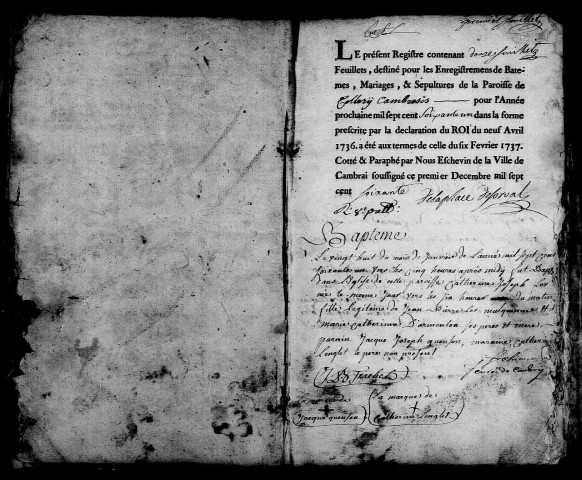 premier feuillet
LE présent Registre contenant douze feuillets
Feuillets, destiné pour les Enregistremens de Batê-
mes, Mariages, & Sepultures de la Paroisse de
Cambresis pour l'Année
prochaine mil sept cent Soixante un dans la forme
prescrite par la declaration du ROI du neuf Avril
1736. a été aux termes de celle du six Fevrier 1737.
Cotté & Paraphé par Nous Eschevin de la Ville de
Cambrai soussigné ce premier Decembre mil sept
cent soixante Delaplace
Bapteme
Le vingt huit du mois de Janvier de l'année mil sept cent
soixante un vers les cinq heures après midy fut
dans l'Eglise de cette paroisse Catherine Joseph
né le meme jour vers les six heures du matin
fille legitime de Jean Pierre mulquinier et
marie catherine ses pere et mere
parain Jacque Joseph quenson, maraine Catherine
Lenglet le pere non present
la marque de
la marque de
Jacque quenson
Catherine Lenglet